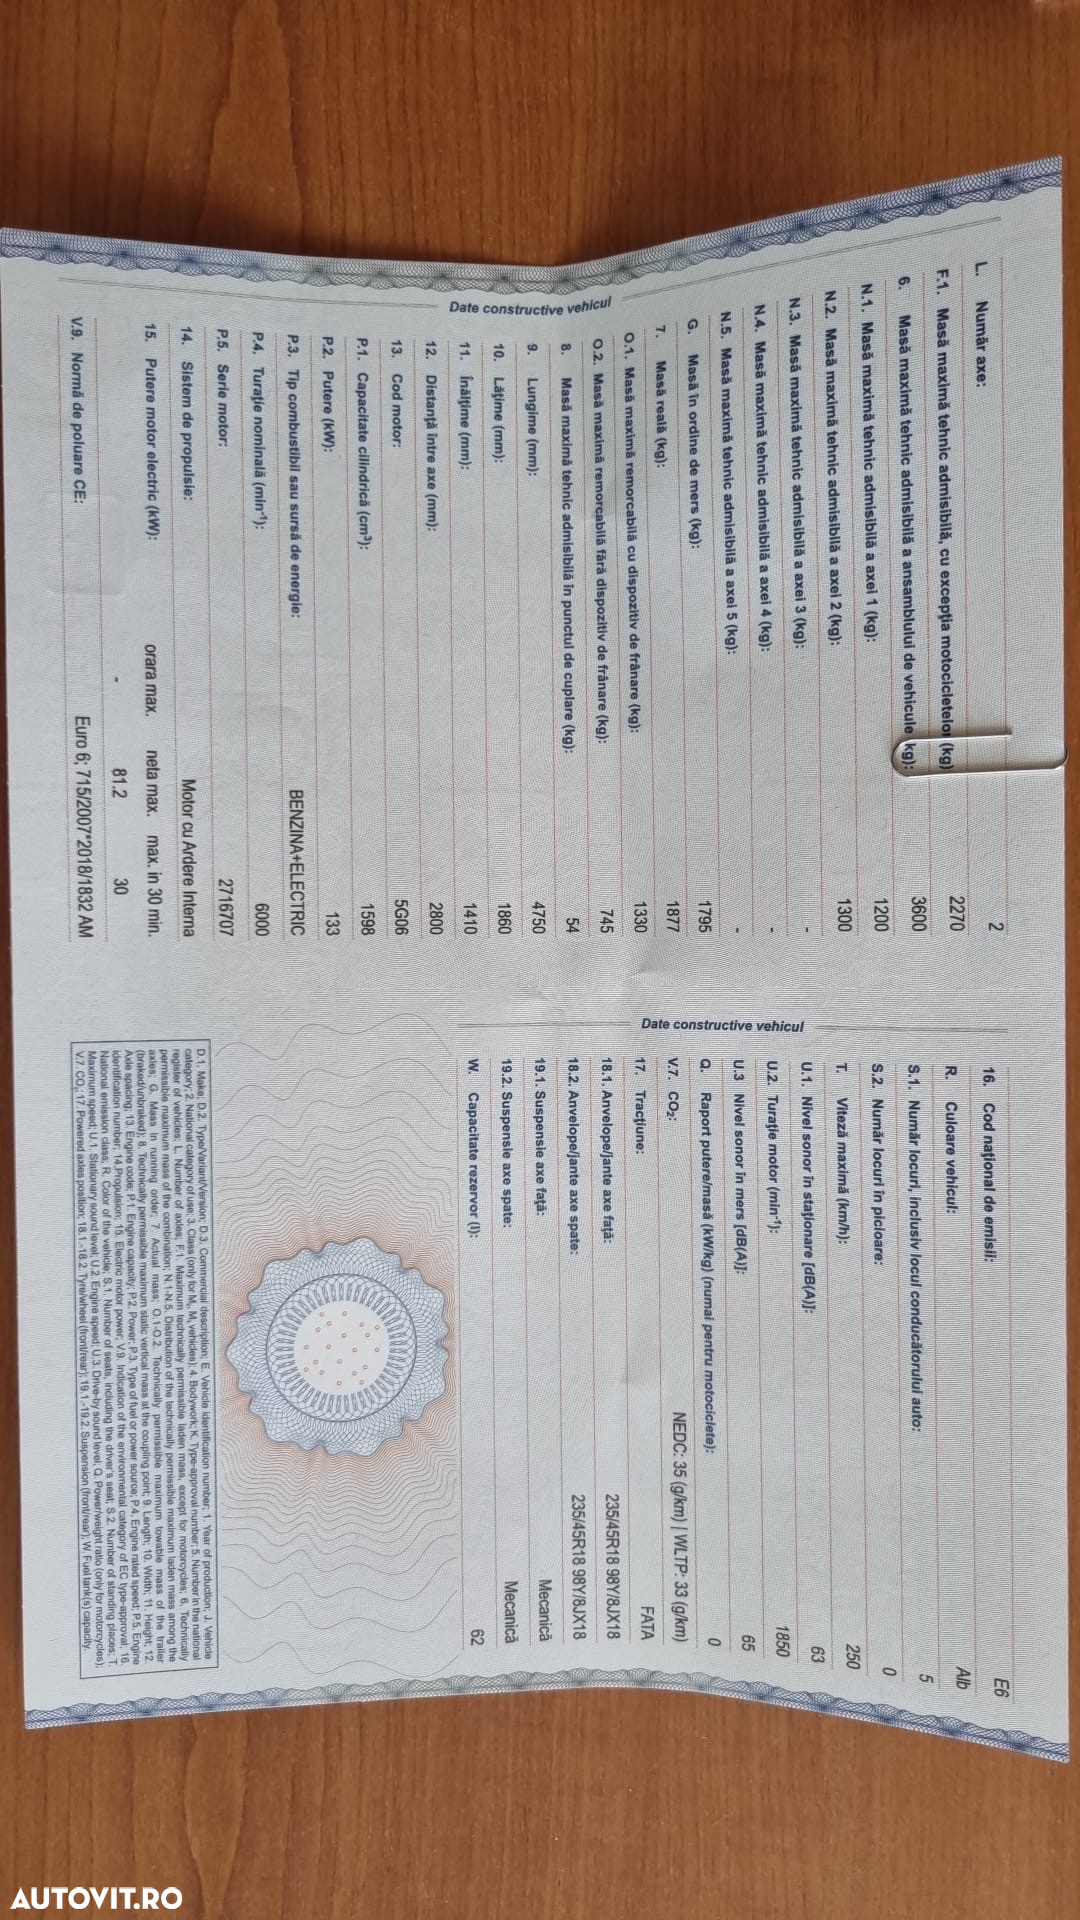 Date constructive vehicul
L. Număr axe: 2
F.1. Masă maximă tehnic admisibilă, cu excepția motocicletelor (kg) 2270
6. Masă maximă tehnic admisibilă a ansamblului de vehicule kg): 3600
N.1. Masă maximă tehnic admisibilă a axei 1 (kg): 1200
N.2. Masă maximă tehnic admisibilă a axei 2 (kg): 1300
N.3. Masă maximă tehnic admisibilă a axei 3 (kg): -
N.4. Masă maximă tehnic admisibilă a axei 4 (kg): -
N.5. Masă maximă tehnic admisibilă a axei 5 (kg): -
G. Masă în ordine de mers (kg): 1795
7. Masă reală (kg): 1877
O.1. Masă maximă remorcabilă cu dispozitiv de frânare (kg): 1330
O.2. Masă maximă remorcabilă fără dispozitiv de frânare (kg): 745
8. Masă maximă tehnic admisibilă în punctul de cuplare (kg): 54
9. Lungime (mm): 4750
10. Lățime (mm): 1860
11. Înălțime (mm): 1410
12. Distanță între axe (mm): 2800
13. Cod motor: 5G06
P.1. Capacitate cilindrică (cm³): 1598
P.2. Putere (kW): 133
P.3. Tip combustibil sau sursă de energie: BENZINA+ELECTRIC
P.4. Turație nominală (min⁻¹): 6000
P.5. Serie motor: 2716707
14. Sistem de propulsie: Motor cu Ardere Interna
15. Putere motor electric (kW): orara max. neta max. max. in 30 min.
- 81.2 30
V.9. Normă de poluare CE: Euro 6; 715/2007*2018/1832 AM
Date constructive vehicul
16. Cod național de emisii: E6
R. Culoare vehicul: Alb
S.1. Număr locuri, inclusiv locul conducătorului auto: 5
S.2. Număr locuri în picioare: 0
T. Viteză maximă (km/h): 250
U.1. Nivel sonor în staționare [dB(A)]: 63
U.2. Turație motor (min⁻¹): 1850
U.3 Nivel sonor în mers [dB(A)]: 65
Q. Raport putere/masă (kW/kg) (numai pentru motociclete): 0
V.7. CO₂: NEDC: 35 (g/km) | WLTP: 33 (g/km)
17. Tracțiune: FATA
18.1. Anvelope/jante axe față: 235/45R18 98Y/8JX18
18.2. Anvelope/jante axe spate: 235/45R18 98Y/8JX18
19.1. Suspensie axe față: Mecanică
19.2. Suspensie axe spate: Mecanică
W. Capacitate rezervor (l): 62
D.1. Make; D.2. Type/Variant/Version; D.3. Commercial description; E. Vehicle identification number; 1. Year of production; J. Vehicle
category; 2. National category of use; 3. Class (only for M₂, M₃ vehicles); 4. Bodywork; K. Type-approval number; 5. Number in the national
register of vehicles; L. Number of axles; F.1. Maximum technically permissible laden mass, except for motorcycles; 6. Technically
permissible maximum mass of the combination; N.1-N.5. Distribution of the technically permissible maximum laden mass among the
axles; G. Mass in running order; 7. Actual mass; O.1-O.2. Technically permissible maximum towable mass of the trailer
(braked/unbraked); 8. Technically permissible maximum static vertical mass at the coupling point; 9. Length; 10. Width; 11. Height; 12.
Axle spacing; 13. Engine code; P.1. Engine capacity; P.2. Power; P.3. Type of fuel or power source; P.4. Engine rated speed; P.5. Engine
identification number; 14.Propulsion; 15. Electric motor power; V.9. Indication of the environmental category of EC type-approval; 16.
National emission class; R. Color of the vehicle; S.1. Number of seats, including the driver's seat; S.2. Number of standing places; T.
Maximum speed; U.1. Stationary sound level; U.2. Engine speed; U.3. Drive-by sound level; Q. Power/weight ratio (only for motorcycles);
V.7. CO₂; 17. Powered axles position; 18.1.-18.2. Tyre/wheel (front/rear); 19.1.-19.2. Suspension (front/rear); W. Fuel tank(s) capacity.
AUTOVIT.RO